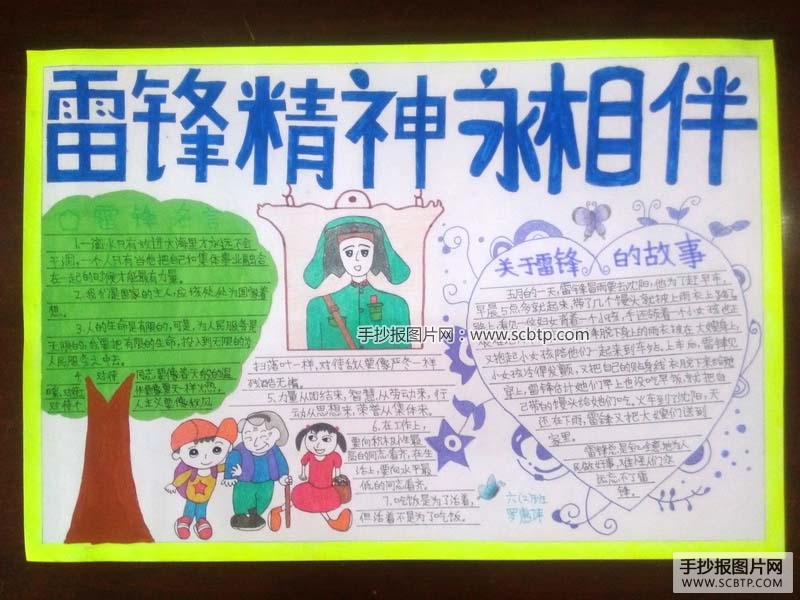 雷锋精神永相伴
雷锋名言
1.一滴水只有放进大海里才永远不会
干涸,一个人只有当他把自己和集体事业融合
在一起的时候才能最有力量。
2.我们是国家的主人,应该处处为国家着
想。
3.人的生命是有限的,可是,为人民服务是
无限的,我要把有限的生命,投入到无限的为
人民服务之中去。
4.对待同志要像春天般的温
暖,对待
扫落叶一样,对待敌人要像严冬一样
残酷无情。
5.力量从团结来,智慧从劳动来,行
动从思想来,荣誉从集体来。
6.在工作上,
要向积极性最
高的同志看齐,在生
活上,要向水平最
低的同志看齐。
7.吃饭是为了活着,
但活着不是为了吃饭。
关于雷锋的故事
五月的一天,雷锋冒雨要去沈阳,他为了赶早车,
早晨5点多就起来,带了几个馒头就披上雨衣上路了
路上,看见一位妇女背着一个小孩,手还领着一个小女孩也正
来脱下身上的雨衣披在大嫂身上,
又抱起小女孩陪他们一起来到车站,上车后,雷锋见
小女孩冷得发颤,又把自己的贴身线衣脱下来给她
穿上,雷锋估计她们早上也没吃早饭,就把自
己带的馒头给她们吃。火车到了沈阳,天
还在下雨,雷锋又把大嫂们送到
家里。
雷锋总是
做好事,难怪人们永
远忘不了雷
锋。
六(2)班
手抄报图片网:www.scbtp.com
手抄报图片网
WWW.SCBTP.COM